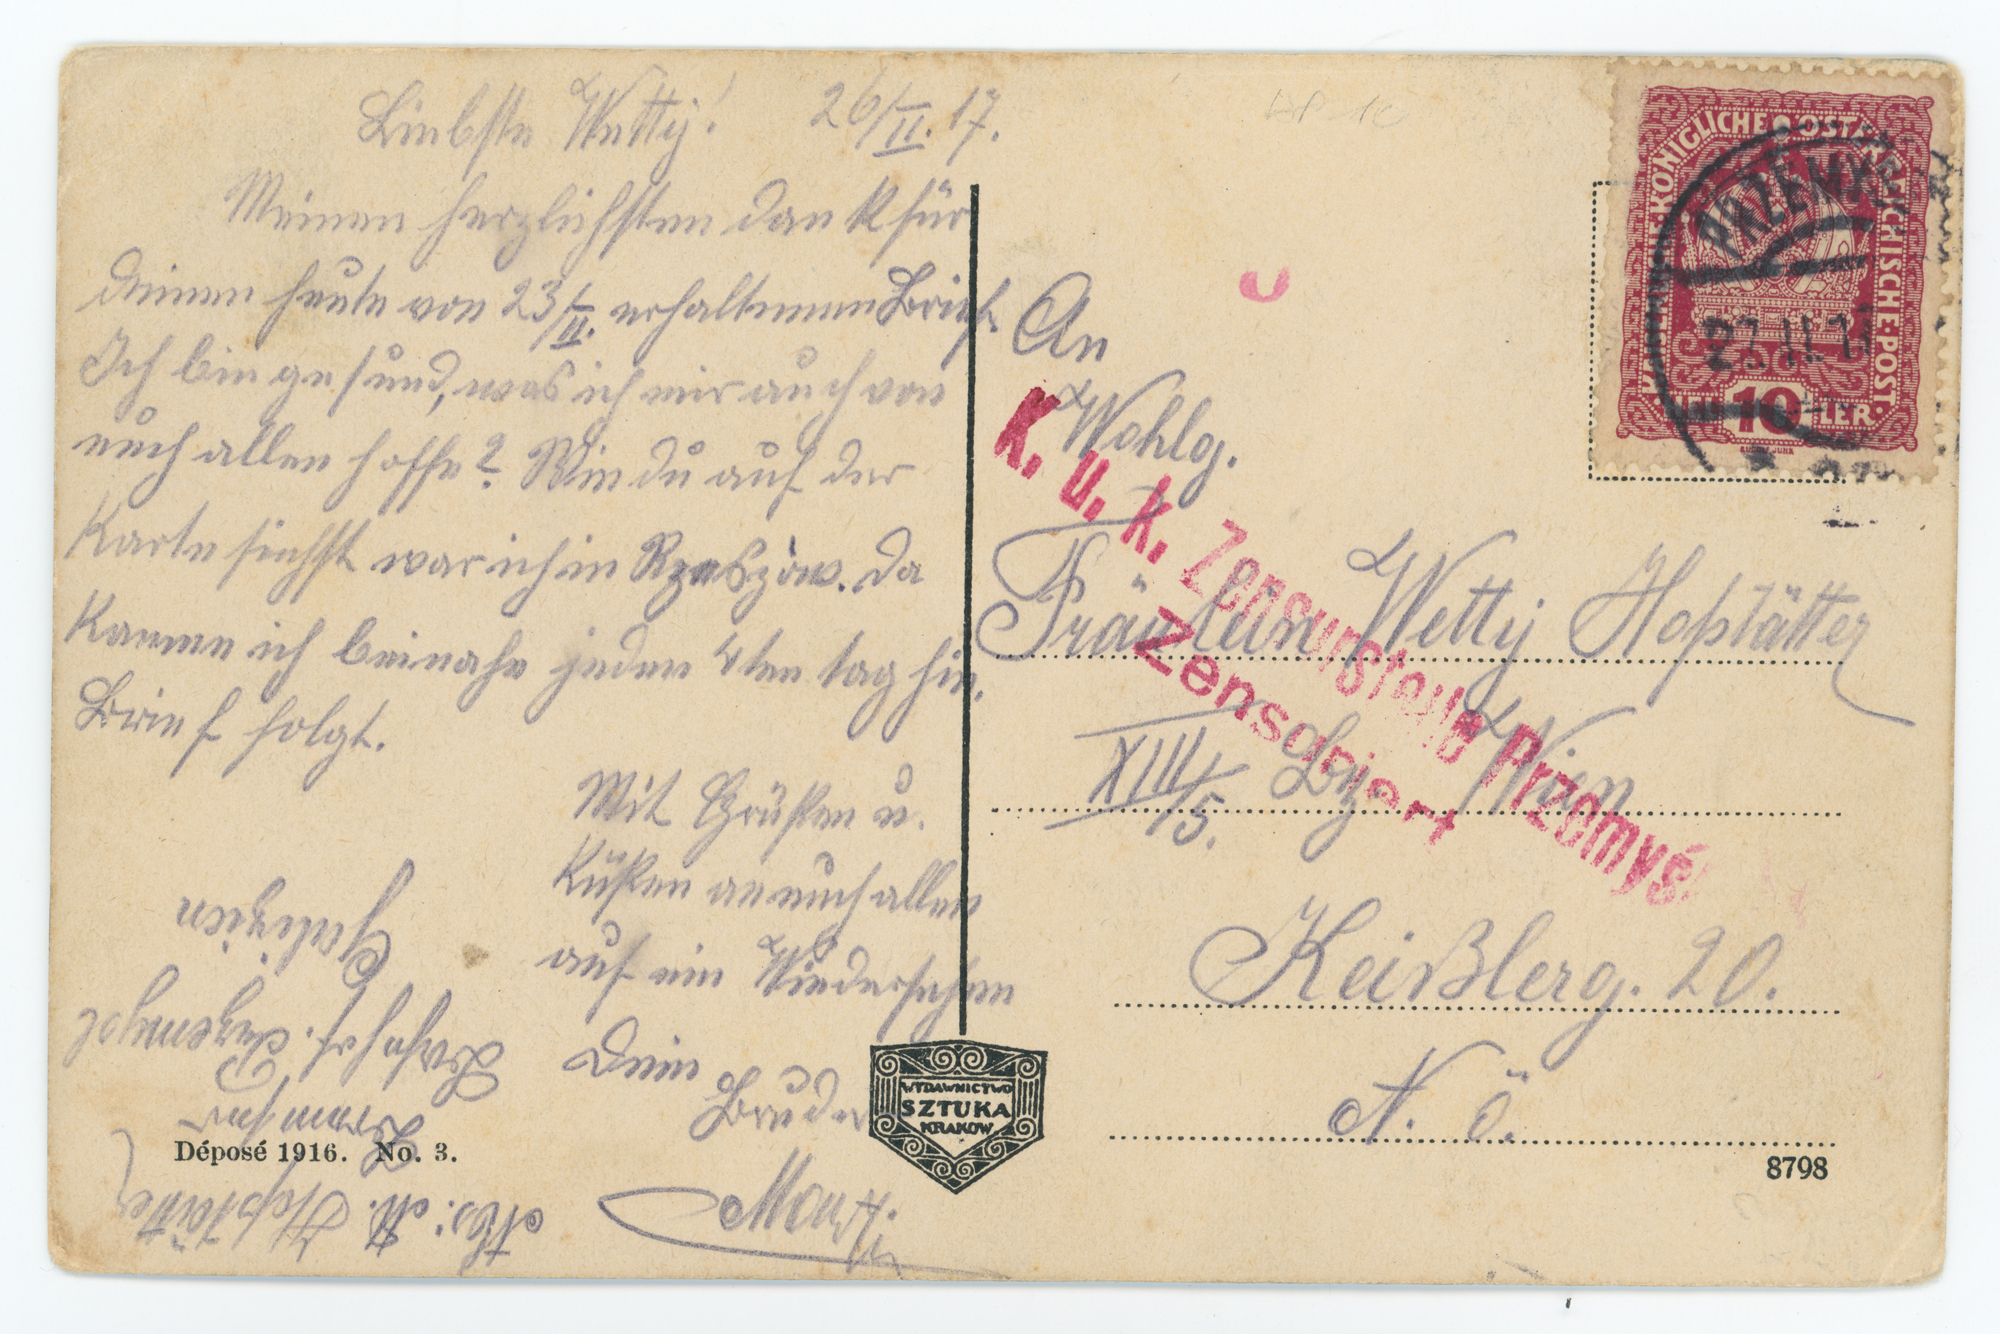 Liebste Wetty! 26/II. 17.
Meinen herzlichsten dank für
deinen heute von 23/II. erhaltenen Brief.
Ich bin gesund, was ich mir auch von
euch allen hoffe? Wie du auf der
Karte siehst war ich in Rzeszow. Da
komme ich beinahe jeden 4ten tag hin.
Brief folgt.
Mit Grüßen u.
Küßen an euch allen
auf ein Wiedersehen
Dein
Bruder
Abs: M. Hopstätter
Bremser
Przemysl
Galizien
Déposé 1916. No. 3.
WYDAWNICTWO
SZTUKA
KRAKÓW
An
Wohlg.
Fräulein Wetty Hopstätter
XIII/5. Bz. Wien
Keißlerg. 20.
N. Ö.
8798
K. u. k. Zensurstelle Przemyśl
Zensuriert
KAISERLICHE KÖNIGLICHE ÖSTERREICHISCHE POST
10 HELLER
PRZEMYŚL
27 II 17